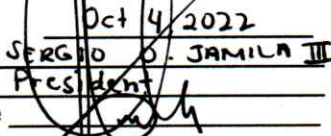 Oct 4, 2022
SERGIO O. JAMILA III
President